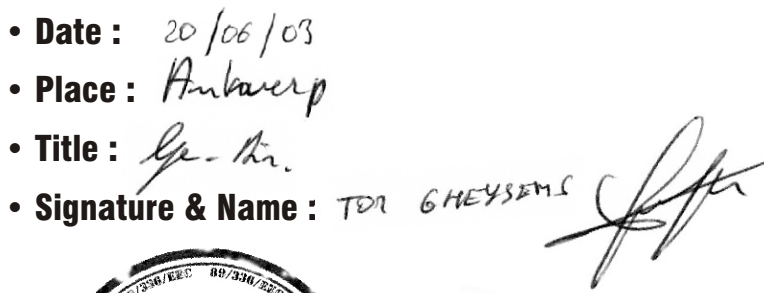 • Date : 20/06/03
• Place : Antwerp
• Title :
• Signature & Name : TOM GHEYSENS
/336/EEC 89/336/EEC